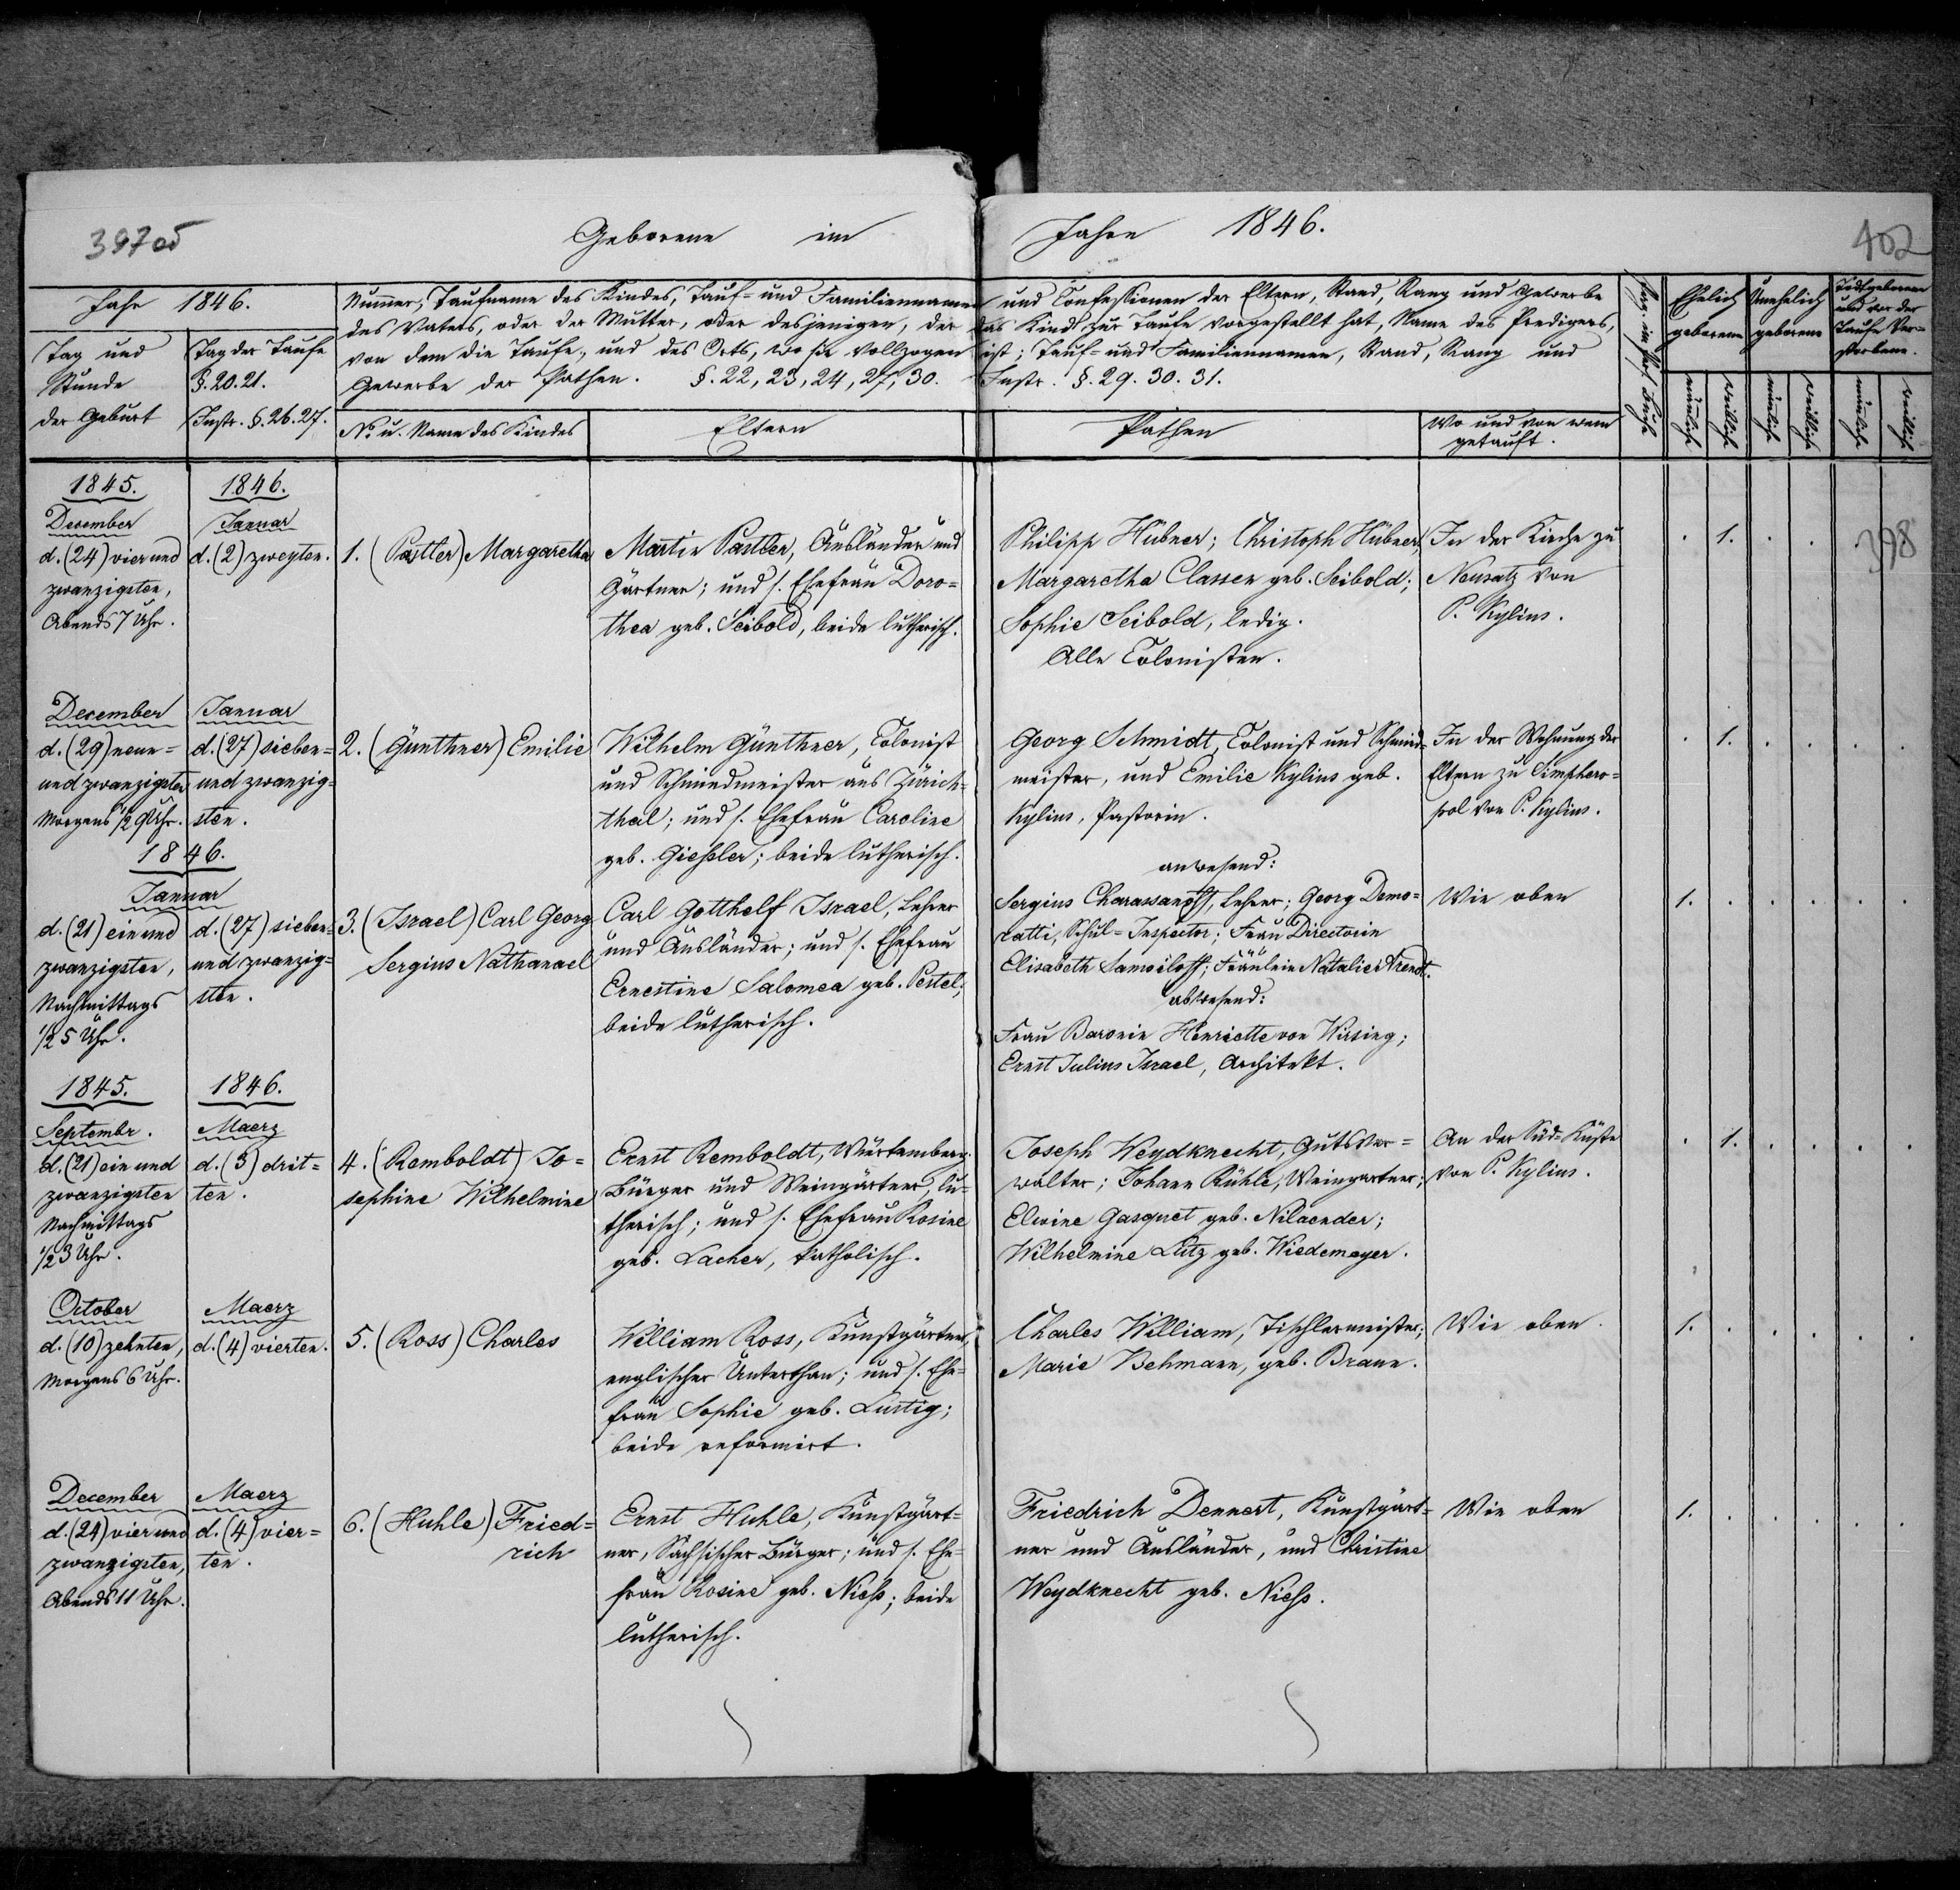 397 об
Geborene im Jahre 1846.
402
Jahr 1846.
Tag und
Stunde
der Geburt
Tag der Taufe
§. 20. 21.
Instr. §. 26. 27.
Numer, Taufname des Kindes, Tauf- und Familiennamen und Confessionen der Eltern, Stand, Rang und Gewerbe
des Vaters, oder der Mutter, oder desjenigen, der das Kind zur Taufe vorgestellt hat, Name des Predigers,
von dem die Taufe, und des Orts, wo sie vollzogen ist; Tauf- und Familiennamen, Stand, Rang und
Gewerbe der Pathen. §. 22, 23, 24, 27, 30. Instr. §. 29. 30. 31.
No. u. Name des Kindes
Eltern
Pathen
Wo und von wem
getauft.
Ehelich
geborene
Unehelich
geborene
Todtgeborene
und vor der
Taufe Ver=
storbene.
männlich
weiblich
männlich
weiblich
männlich
weiblich
1845.
December
d. (24) vier und
zwanzigsten,
Abends 7 Uhr.
1846.
Januar
d. (2) zweyten.
1. (Pastler) Margaretha
Martin Pastler, Ausländer und
Gärtner; und s. Ehefrau Doro=
thea geb. Seibold, beide lutherisch.
Philipp Hübner; Christoph Hübner;
Margaretha Classen geb. Seibold;
Sophie Seibold, ledig.
Alle Colonisten.
In der Kirche zu
Neusatz von
P. Kylius.
1.
398
December
d. (29) neun=
und zwanzigsten
Morgens 1/2 9 Uhr.
Januar
d. (27) sieben=
und zwanzig=
sten.
2. (Günthner) Emilie
Wilhelm Günthner, Colonist
und Schmiedmeister aus Zürich=
thal; und s. Ehefrau Caroline
geb. Giessler; beide lutherisch.
Georg Schmidt, Colonist und Schmied=
meister, und Emilie Kylius geb.
Kylius, Pastorin.
In der Wohnung der
Eltern zu Simphero=
pol von P. Kylius.
1.
1846.
Januar
d. (21) ein und
zwanzigsten,
Nachmittags
1/2 5 Uhr.
d. (27) sieben=
und zwanzig=
sten.
3. (Israel) Carl Georg
Sergius Nathanael
Carl Gotthelf Israel, Lehrer
und Ausländer; und s. Ehefrau
Ernestine Salomea geb. Pestel;
beide lutherisch.
anwesend:
Sergius Charassanoff, Lehrer; Georg Demo=
ratti, Schul=Inspector; Frau Directorin
Elisabeth Samoiloff; Fräulein Natalie Arendt.
abwesend:
Frau Baronin Henriette von Wirsing;
Ernst Julius Israel, Architekt.
Wie oben
1.
1845.
Septembr.
d. (21) ein und
zwanzigsten
Nachmittags
1/2 3 Uhr.
1846.
Maerz
d. (3) drit=
ten.
4. (Remboldt) Jo=
sephine Wilhelmine
Ernst Remboldt, Würtemberg.
Bürger und Weingärtner, lu=
therisch; und s. Ehefrau Rosine
geb. Lacher, katholisch.
Joseph Weydknecht, Gutsver=
walter; Johann Rühle, Weingartner;
Elwine Gasquet geb. Nilaender;
Wilhelmine Lutz geb. Wiedemayer.
An der Süd=Küste
von P. Kylius.
1.
October
d. (10) zehnten,
Morgens 6 Uhr.
Maerz
d. (4) vierten.
5. (Ross) Charles
William Ross, Kunstgärtner,
englischer Unterthan; und s. Ehe=
frau Sophie geb. Lustig;
beide reformirt.
Charles William, Tischlermeister;
Marie Behmann, geb. Braun.
Wie oben.
1.
December
d. (24) vier und
zwanzigsten,
Abends 11 Uhr.
Maerz
d. (4) vier=
ten.
6. (Huhle) Fried=
rich
Ernst Huhle, Kunstgärt=
ner, Sächsischer Bürger; und s. Ehe=
frau Rosine geb. Niess; beide
lutherisch.
Friedrich Dennert, Kunstgärt=
ner und Ausländer, und Christine
Weydknecht geb. Niess.
Wie oben
1.